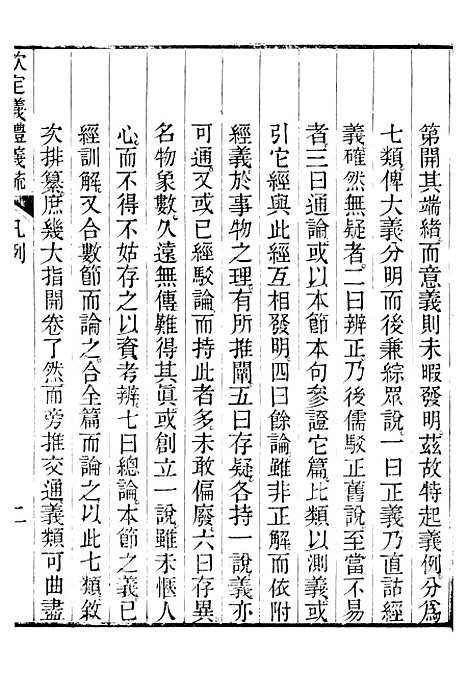 第開其端緒而意義則未暇發明茲故特起義例分爲
七類俾大義分明而後兼綜眾說一曰正義乃直詁經
義確然無疑者二曰辨正乃後儒駁正舊說至當不易
者三曰通論或以本節本句參證它篇比類以測義或
引它經與此經互相發明四曰餘論雖非正解而依附
經義於事物之理有所推闡五曰存疑各持一說義亦
可通又或已經駁論而持此者多未敢偏廢六曰存異
名物象數久遠無傳難得其眞或創立一說雖未愜人
心而不得不姑存之以資考辨七曰總論本節之義已
經訓解又合數節而論之合全篇而論之以此七類敘
次排纂庶幾大指開卷了然而旁推交通義類可曲盡
欽定義禮義疏 凡例 二